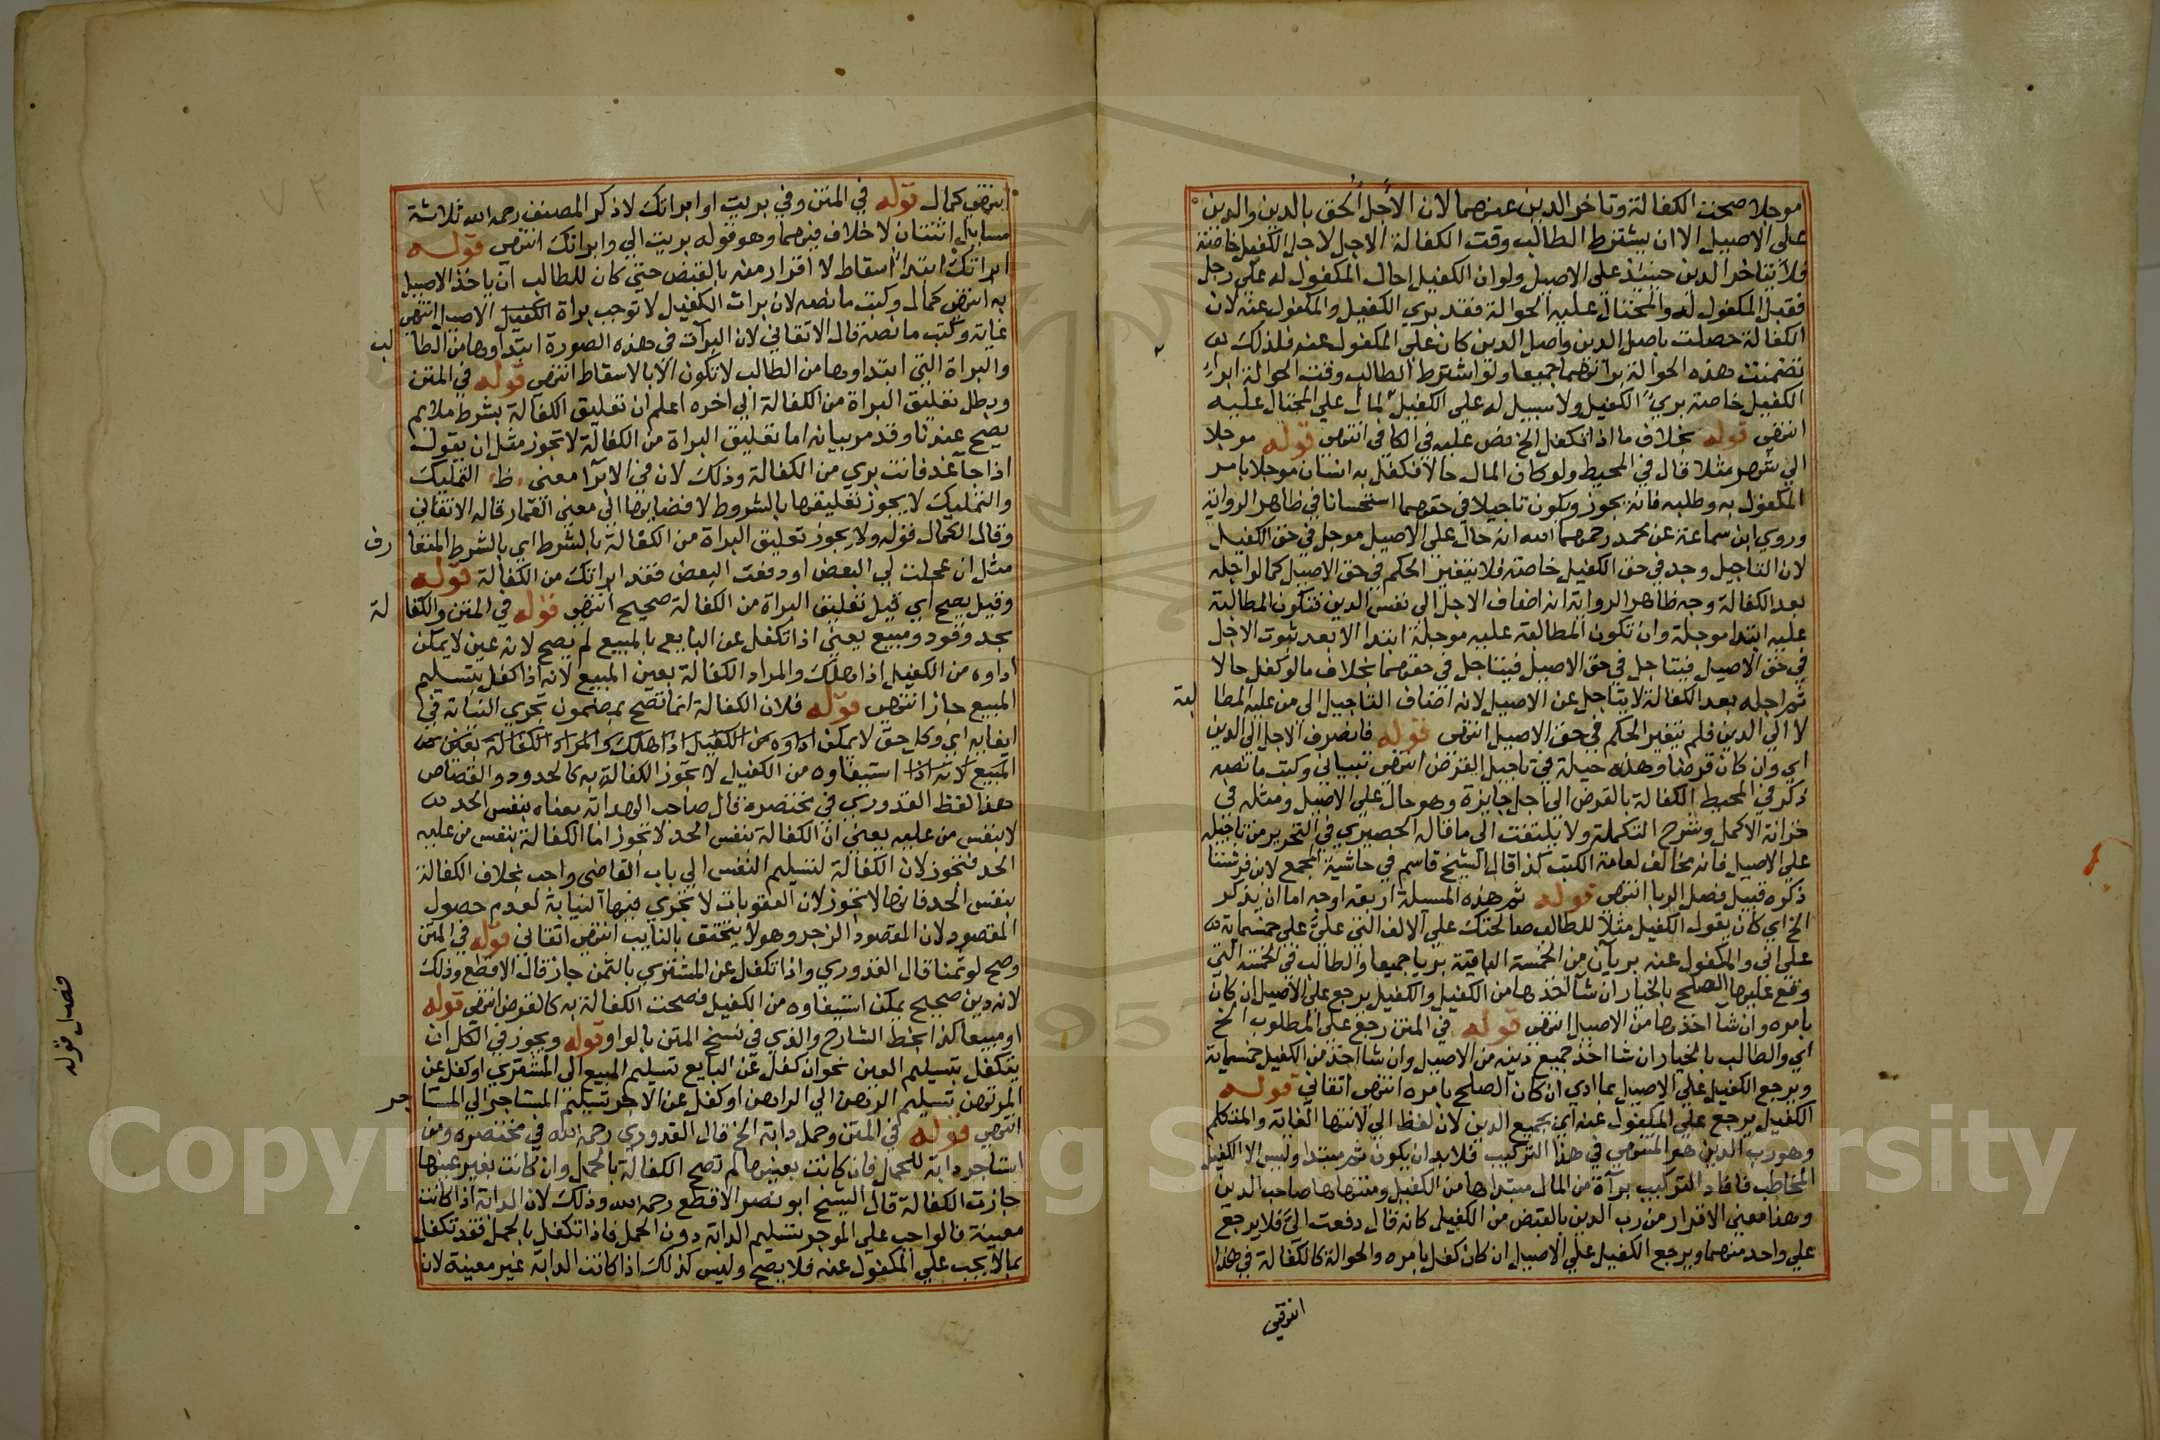 موجلا صحت الكفالة وتاخر الدين عنهما لان الاجل الحق بالدين والدين
على الاصيل الا ان يشترط الطالب وقت الكفالة الاجل لاجل الكفيل خاصة
فلا يتاخر الدين حينئذ على الاصيل ولو ان الكفيل احال المكفول له على رجل
فقبل المكفول له والمحتال عليه الحوالة فقد بري الكفيل والمكفول عنه لان
الكفالة حصلت باصل الدين واصل الدين كان على المكفول عنه فلذلك
تضمنت هذه الحوالة براتهما جميعا ولو اشترط الطالب وقت الحوالة ابراء
الكفيل خاصة بري الكفيل ولا سبيل له على الكفيل المال على المحتال عليه
انتهى قوله بخلاف ما اذا تكفل الخ نص عليه في الكافي انتهى قوله موجلا
الى شهر مثلا قال في المحيط ولو كان المال حالا فكفل به انسان موجلا بامر
المكفول به وطلبه فانه يجوز ويكون تاجيلا في حقهما استحسانا في ظاهر الرواية
وروي ابن سماعة عن محمد رحمهما الله انه حال على الاصيل موجل في حق الكفيل
لان التاجيل وجد في حق الكفيل خاصة فلا يتغير الحكم في حق الاصيل كما لو اجله
بعد الكفالة وجه ظاهر الرواية انه اضاف الاجل الى نفس الدين فتكون المطالبة
عليه ابتدا موجلة وان تكون المطالبة عليه موجلة ابتدا الا بعد ثبوت الاجل
في حق الاصيل فيتاجل في حق الاصيل فيتاجل في حقهما بخلاف ما لو كفل حالا
ثم اجله بعد الكفالة لا يتاجل عن الاصيل لانه اضاف التاجيل الى من عليه المطا لبة
لا الى الدين فلم يتغير الحكم في حق الاصيل انتهى قوله فانصرف الاجل الى الدين
اي وان كان قرضا وهذه حيلة في تاجيل القرض انتهى وكتب ما نصه
ذكر في المحيط الكفالة بالقرض الى اجل جايزة وهو حال على الاصيل ومثله في
خزانة الاكمل وشرح التكملة ولا يلتفت الى ما قاله الحصيري في التحرير من تاجيله
على الاصيل فانه مخالف لعامة الكتب كذا قال الشيخ قاسم في حاشية المجمع لابن فرشتا
ذكره قبيل فصل الربا انتهى قوله ثم هذه المسلة اربعة اوجه اما ان يذكر
الخ اي كان يقول الكفيل مثلا للطالب صالحتك على الالف التي علي على خمسماية
على اني والمكفول عنه بريآن من الخمسة الباقية بريا جميعا والطالب في الخمسة التي
وقع عليها الصلح بالخيار ان شا اخذها من الكفيل والكفيل يرجع على الاصيل ان كان
بامره وان شا اخذها من الاصيل انتهى قوله في المتن رجع على المطلوب الخ
اي والطالب بالخيار ان شا اخذ جميع دينه من الاصيل وان شا اخذ من الكفيل خمسماية
ويرجع الكفيل على الاصيل بما ادي ان كان الصلح بامره انتهى اتقاني قوله
الكفيل يرجع على المكفول عنه اي بجميع الدين لان لفظ الى لانتها الغاية والمتكلم
وهو رب الدين هو المنتهى في هذا التركيب فلا بد ان يكون ثم مبتدا وليس الا الكفيل
المخاطب فافاد التركيب برآة من المال مبتداها من الكفيل ومنتهاها صاحب الدين
وهذا معنى الاقرار من رب الدين بالقبض من الكفيل كانه قال دفعت الي فلا يرجع
على واحد منهما ويرجع الكفيل على الاصيل ان كان كفل بامره والحوالة كالكفالة في هذا
انتهى
انتهى كمال قوله في المتن وفي بريت او ابراتك لا ذكر المصنف رحمه الله ثلاثة
مسايل اثنتان لا خلاف فيهما وهو قوله بريت الي وابراتك انتهى قوله
ابراتك ابتدا اسقاط لا اقرار منه بالقبض حتى كان للطالب ان ياخذ الاصيل
به انتهى كمال وكتب ما نصه لان برات الكفيل لا توجب براة الاصيل انتهى
غاية وكتب ما نصه قال الاتقاني لان البرآت في هذه الصورة ابتداوها من الطا لب
والبراة التي ابتداوها من الطالب لا تكون الا بالاسقاط انتهى قوله في المتن
وبطل تعليق البراة من الكفالة الى اخره اعلم ان تعليق الكفالة بشرط ملايم
يصح عندنا وقد مر بيانه اما تعليق البراة من الكفالة لا تجوز مثل ان يقول
اذا جا غد فانت بري من الكفالة وذلك لان في الابرآ معنى التمليك
والتمليك لا يجوز تعليقها بالشروط لافضايها الى معنى القمار قاله الاتقاني
وقال الكمال قوله ولا يجوز تعليق البراة من الكفالة بالشرط اي بالشرط المتعا رف
مثل ان عجلت لي البعض او دفعت البعض فقد ابراتك من الكفالة قوله
وقيل يصح اي قيل تعليق البراة من الكفالة صحيح انتهى قوله في المتن والكفا لة
بحد وقود ومبيع يعني اذا تكفل عن البايع بالمبيع لم يصح لانه عين لا يمكن
اداوه من الكفيل اذا هلك والمراد الكفالة بعين المبيع لانه اذا كفل بتسليم
المبيع جاز انتهى قوله فلان الكفالة انما تصح بمضمون تجري النيابة في
ايفايه اي وكل حق لا يمكن اداوه من الكفيل اذا هلك والمراد الكفالة بعين
المبيع لانه اذا استيفاوه من الكفيل لا تجوز الكفالة به كالحدود والقصاص
هذا لفظ القدوري في مختصره قال صاحب الهداية معناه بنفس الحد
لا بنفس من عليه يعني ان الكفالة بنفس الحد لا تجوز اما الكفالة بنفس من عليه
الحد فتجوز لان الكفالة لتسليم النفس الى باب القاضي واجب بخلاف الكفالة
بنفس الحد فانها لا تجوز لان العقوبات لا تجري فيها النيابة لعدم حصول
المقصود لان المقصود الزجر وهو لا يتحقق بالنايب انتهى اتقاني قوله في المتن
وصح لو ثمنا قال القدوري واذا تكفل عن المشتري بالثمن جاز قال الاقطع وذلك
لانه دين صحيح يمكن استيفاوه من الكفيل فصحت الكفالة به كالقرض انتهى قوله
او مبيعا كذا بخط الشارح والذي في نسخ المتن بالواو قوله ويجوز في الكل ان
يتكفل بتسليم العين نحو ان كفل عن البايع تسليم المبيع الى المشتري او كفل عن
المرتهن تسليم الرهن الى الراهن او كفل عن الاجر تسليم المستاجر الى المستا جر
انتهى قوله في المتن وحمل دابة الخ قال القدوري رحمه الله في مختصره ومن
استاجر دابة للحمل فان كانت بعينها لم تصح الكفالة بالحمل وان كانت بغير عينها
جازت الكفالة قال الشيخ ابو نصر الاقطع رحمه الله وذلك لان الدابة اذا كانت
معينة فالواجب على الموجر تسليم الدابة دون الحمل فاذا تكفل بالحمل فقد تكفل
بما لا يجب على المكفول عنه فلا يصح وليس كذلك اذا كانت الدابة غير معينة لان
فصل قوله